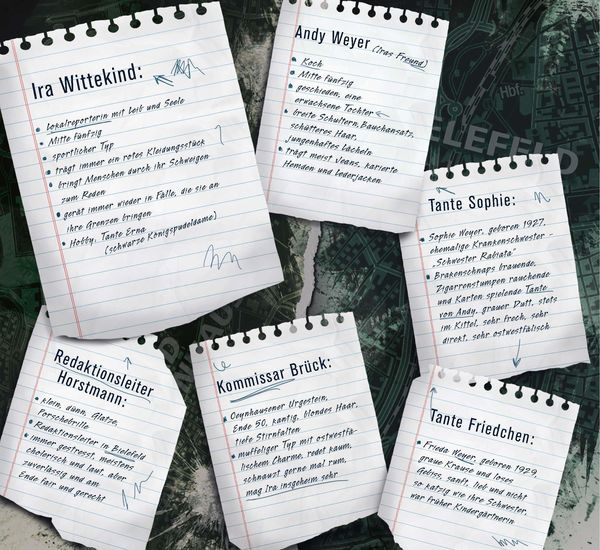 Ira Wittekind:
Lokalreporterin mit Leib und Seele
Mitte fünfzig
sportlicher Typ
trägt immer ein rotes Kleidungsstück
bringt Menschen durch ihr Schweigen
zum Reden
gerät immer wieder in Fälle, die sie an
ihre Grenzen bringen
Hobby: Tante Erna
(schwarze Königspudeldame)
Andy Weyer (Iras Freund)
Koch
Mitte fünfzig
geschieden, eine
erwachsene Tochter
breite Schultern, Bauchansatz,
schütteres Haar,
jungenhaftes Lächeln
trägt meist Jeans, karierte
Hemden und Lederjacken
Hbf.
BIELEFELD
Tante Sophie:
Sophie Weyer, geboren 1927,
ehemalige Krankenschwester –
„Schwester Rabiata"
Brakenschnaps brauende,
Zigarrenstumpen rauchende
und Karten spielende Tante
von Andy, grauer Dutt, stets
im Kittel, sehr frech, sehr
direkt, sehr ostwestfälisch
Redaktionsleiter
Horstmann:
klein, dünn, Glatze,
Forschebrille
Redaktionsleiter in Bielefeld
immer gestresst, meistens
cholerisch und laut, aber
zuverlässig und am
Ende fair und gerecht
Kommissar Brück:
Oeynhausener Urgestein,
Ende 50, kantig, blondes Haar,
tiefe Stirnfalten
muffeliger Typ mit ostwestfä-
lischem Charme, redet kaum,
schnauzt gerne mal rum,
mag Ira insgeheim sehr
Tante Friedchen:
Frieda Weyer, geboren 1929,
graue Krause und loses
Gebiss, sanft, lieb und nicht
so katzig wie ihre Schwester,
war früher Kindergärtnerin